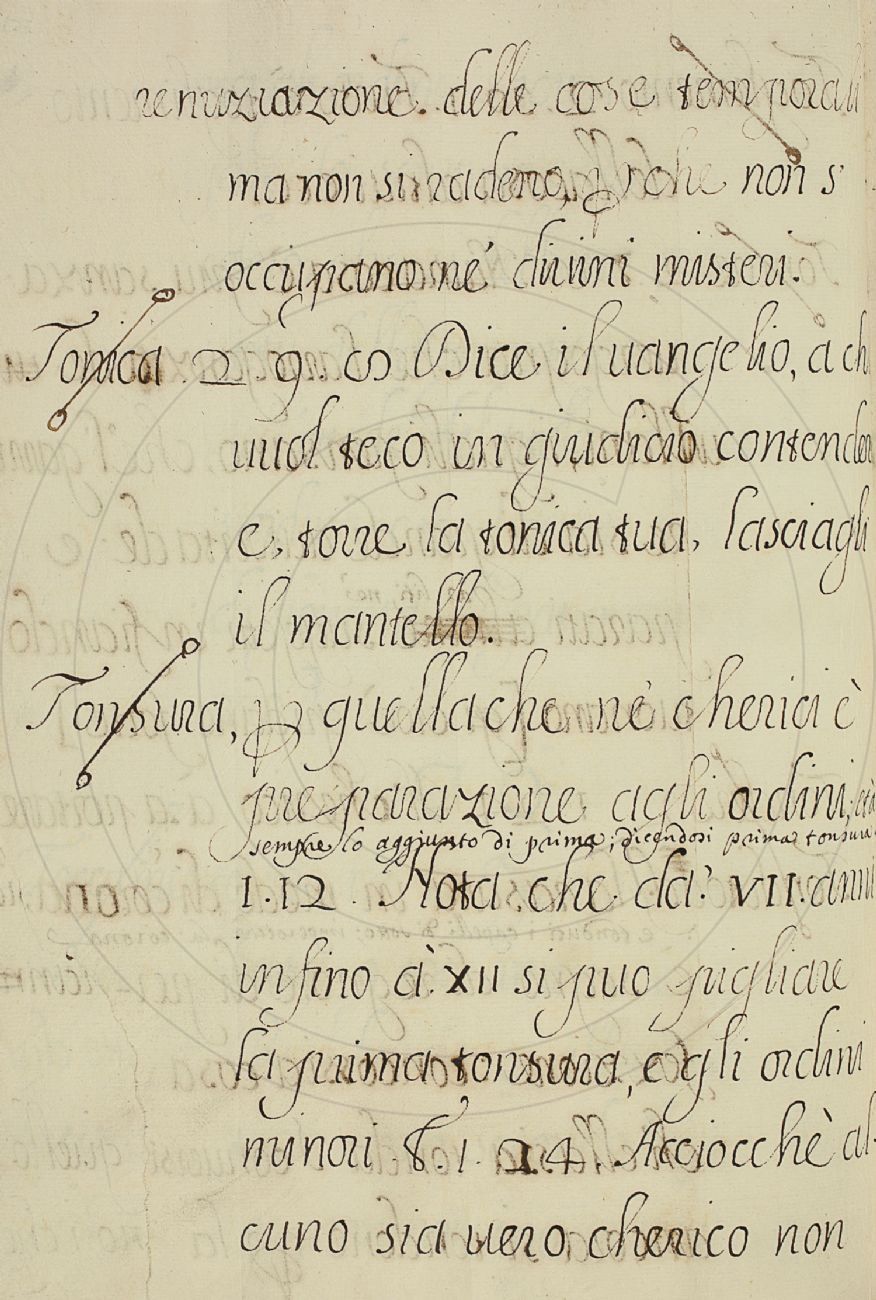 renuziazione. delle cose temporali
ma non si radeno, che non s
occupano ne' diuini misteri.
Tonica 29. Dice il uangelio, a ch
uuol teco in giudicio contender
e, torre la tonica tua, lasciagli
il mantello.
Tonsura, quella che ne' cherici è
preparazione agli ordini,
sempre lo aggiunto di prima; dicendosi prima tonsura
1.12. Nota che da' VII. anni
infino à XII si puo pigliare
la prima tonsura, e gli ordini
minori .1.24. Acciocchè al-
cuno sia uero cherico non